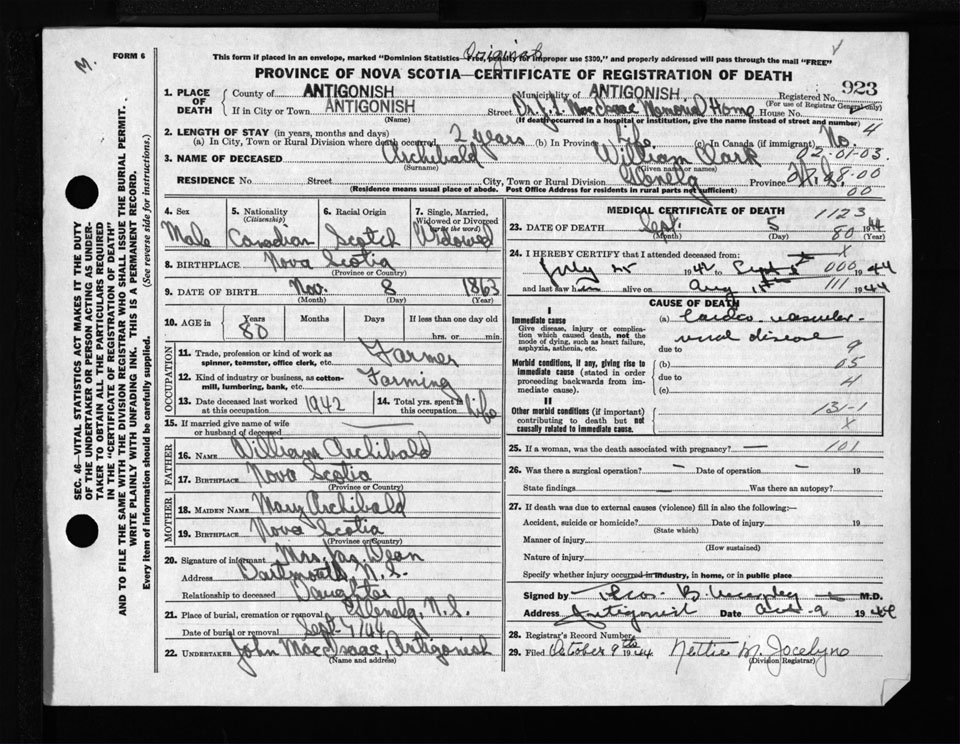 Original
M.
FORM 6
This form if placed in an envelope, marked "Dominion Statistics—Free, penalty for improper use $300," and properly addressed will pass through the mail "FREE"
PROVINCE OF NOVA SCOTIA—CERTIFICATE OF REGISTRATION OF DEATH
923
1. PLACE OF DEATH { County of ANTIGONISH Municipality of ANTIGONISH Registered No.
(For use of Registrar General only)
If in City or Town ANTIGONISH Street Dr. J. L. MacIsaac Memorial Home House No.
(Name) (If death occurred in a hospital or institution, give the name instead of street and number) 4
2. LENGTH OF STAY (in years, months and days)
(a) In City, Town or Rural Division where death occurred 2 years (b) In Province Life (c) In Canada (if immigrant) No.
02-01-03.
3. NAME OF DECEASED Archibald William Clark
(Surname) (Given name or names)
RESIDENCE No. Street City, Town or Rural Division Glenelg Province N.S. 8-00
(Residence means usual place of abode. Post Office Address for residents in rural parts not sufficient) 00
4. Sex 5. Nationality 6. Racial Origin 7. Single, Married, Widowed or Divorced
(Citizenship) (write the word)
Male Canadian Scotch Widowed
8. BIRTHPLACE Nova Scotia
(Province or Country)
9. DATE OF BIRTH Nov. 8 1863
(Month) (Day) (Year)
10. AGE in Years Months Days If less than one day old
80 hrs. or min.
OCCUPATION
11. Trade, profession or kind of work as spinner, teamster, office clerk, etc. Farmer
12. Kind of industry or business, as cotton-mill, lumbering, bank, etc. Farming
13. Date deceased last worked at this occupation 1942 14. Total yrs. spent in this occupation Life
15. If married give name of wife or husband of deceased
FATHER
16. NAME William Archibald
17. BIRTHPLACE Nova Scotia
(Province or Country)
MOTHER
18. MAIDEN NAME Mary Archibald
19. BIRTHPLACE Nova Scotia
(Province or Country)
20. Signature of informant Mrs. Jas. Dean
Address Dartmouth, N.S.
Relationship to deceased Daughter
21. Place of burial, cremation or removal Glenelg, N.S.
Date of burial or removal Sept. 7/44
22. UNDERTAKER John MacIsaac, Antigonish
(Name and address)
MEDICAL CERTIFICATE OF DEATH 1123
23. DATE OF DEATH Sept. 5 80 1944
(Month) (Day) (Year)
24. I HEREBY CERTIFY that I attended deceased from: X
July 25 1942 to Sept 5 000 1944
and last saw him alive on Aug 111 1944
CAUSE OF DEATH
I
Immediate cause (a) Cardio-vascular-renal disease
Give disease, injury or complication which caused death, not the mode of dying, such as heart failure, asphyxia, asthenia, etc.
due to 9
Morbid conditions, if any, giving rise to immediate cause (stated in order proceeding backwards from immediate cause). (b) 05
due to 4
(c)
II
Other morbid conditions (if important) contributing to death but not causally related to immediate cause. 131-1
X
25. If a woman, was the death associated with pregnancy? — 101
26. Was there a surgical operation? — Date of operation — 19
State findings — Was there an autopsy?
27. If death was due to external causes (violence) fill in also the following:—
Accident, suicide or homicide? Date of injury 19
(State which)
Manner of injury
(How sustained)
Nature of injury
Specify whether injury occurred in industry, in home, or in public place
Signed by M.D.
Address Antigonish Date Oct-9 1944
28. Registrar's Record Number
29. Filed October 9th 1944 Nettie M. Jocelyne
(Division Registrar)
SEC. 46—VITAL STATISTICS ACT MAKES IT THE DUTY
OF THE UNDERTAKER OR PERSON ACTING AS UNDER-
TAKER TO OBTAIN ALL THE PARTICULARS REQUIRED
IN THE "CERTIFICATE OF REGISTRATION OF DEATH"
AND TO FILE THE SAME WITH THE DIVISION REGISTRAR WHO SHALL ISSUE THE BURIAL PERMIT.
WRITE PLAINLY WITH UNFADING INK. THIS IS A PERMANENT RECORD.
Every item of information should be carefully supplied. (See reverse side for instructions.)